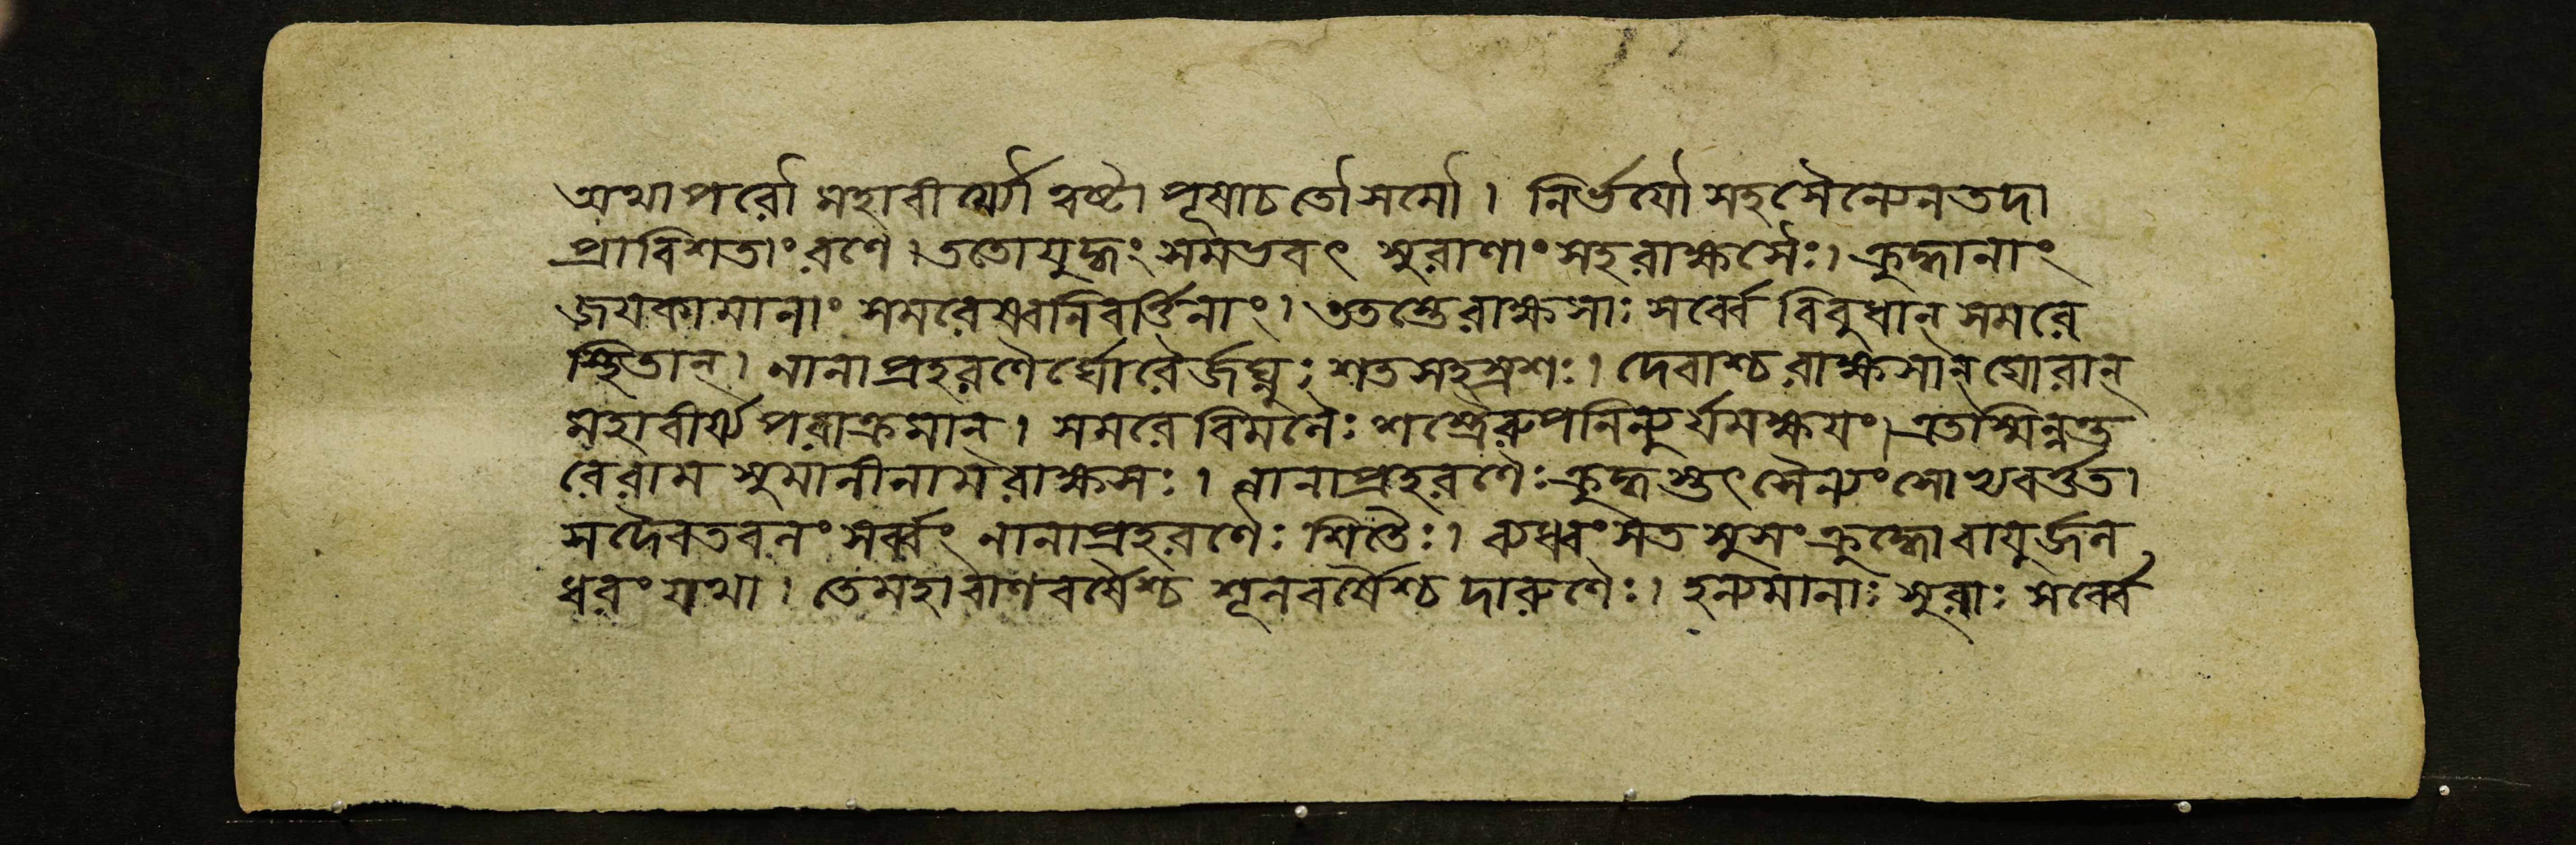 অথাপরৌ মহাবীর্য্যৌ ত্বষ্টা পূষাচতৌসমৌ। নির্ভয়ৌ সহসৈন্যেনতদা
প্রাবিশতাংরণে। ততোযুদ্ধং সমভবৎ সুরাণাং সহরাক্ষসৈঃ। ক্রুদ্ধানাং
জয়কামানাং সমরেষ্বনিবর্ত্তিনাং। ততস্তেরাক্ষসাঃ সর্ব্বে বিবুধান্ সমরে
স্থিতান্। নানাপ্রহরণৈর্ঘোরৈর্জঘ্নুঃ শতসহস্রশঃ। দেবাশ্চ রাক্ষসান্ ঘোরান্
মহাবীর্য্যপরাক্রমান্। সমরে বিমলৈঃ শস্ত্রৈরুপনিন্যুর্যমক্ষয়ং। এতস্মিন্নন্ত
রেরাম সুমালীনামরাক্ষসঃ। নানাপ্রহরণৈঃ ক্রুদ্ধস্তৎসৈন্যং সোভ্যবর্ত্তত।
সদৈবতবলং সর্ব্বং নানাপ্রহরণৈঃ শিতৈঃ। ব্যধ্বংসত সুসংক্রুদ্ধো বায়ুর্জল
ধরং যথা। তেমহাবাণবর্ষৈশ্চ শূলবর্ষৈশ্চ দারুণৈঃ। হন্যমানাঃ সুরাঃ সর্ব্বে